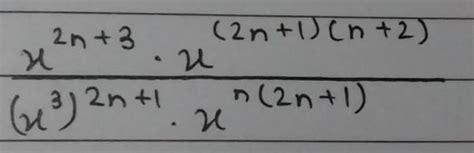 x^{2n+3} · x^{(2n+1)(n+2)}
(x^3)^{2n+1} · x^{n(2n+1)}